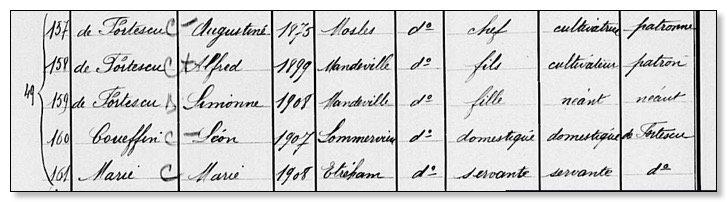 49
157 de Fortescu C - Augustine 1875 Mosles do chef cultivatrice patronne
158 de Fortescu C + Alfred 1899 Mandeville do fils cultivateur patron
159 de Fortescu Simonne 1908 Mandeville do fille néant néant
160 Coueffin C - Léon 1907 Sommervieu do domestique domestique de Fortescu
161 Marie C Marie 1908 Etréham do servante servante do